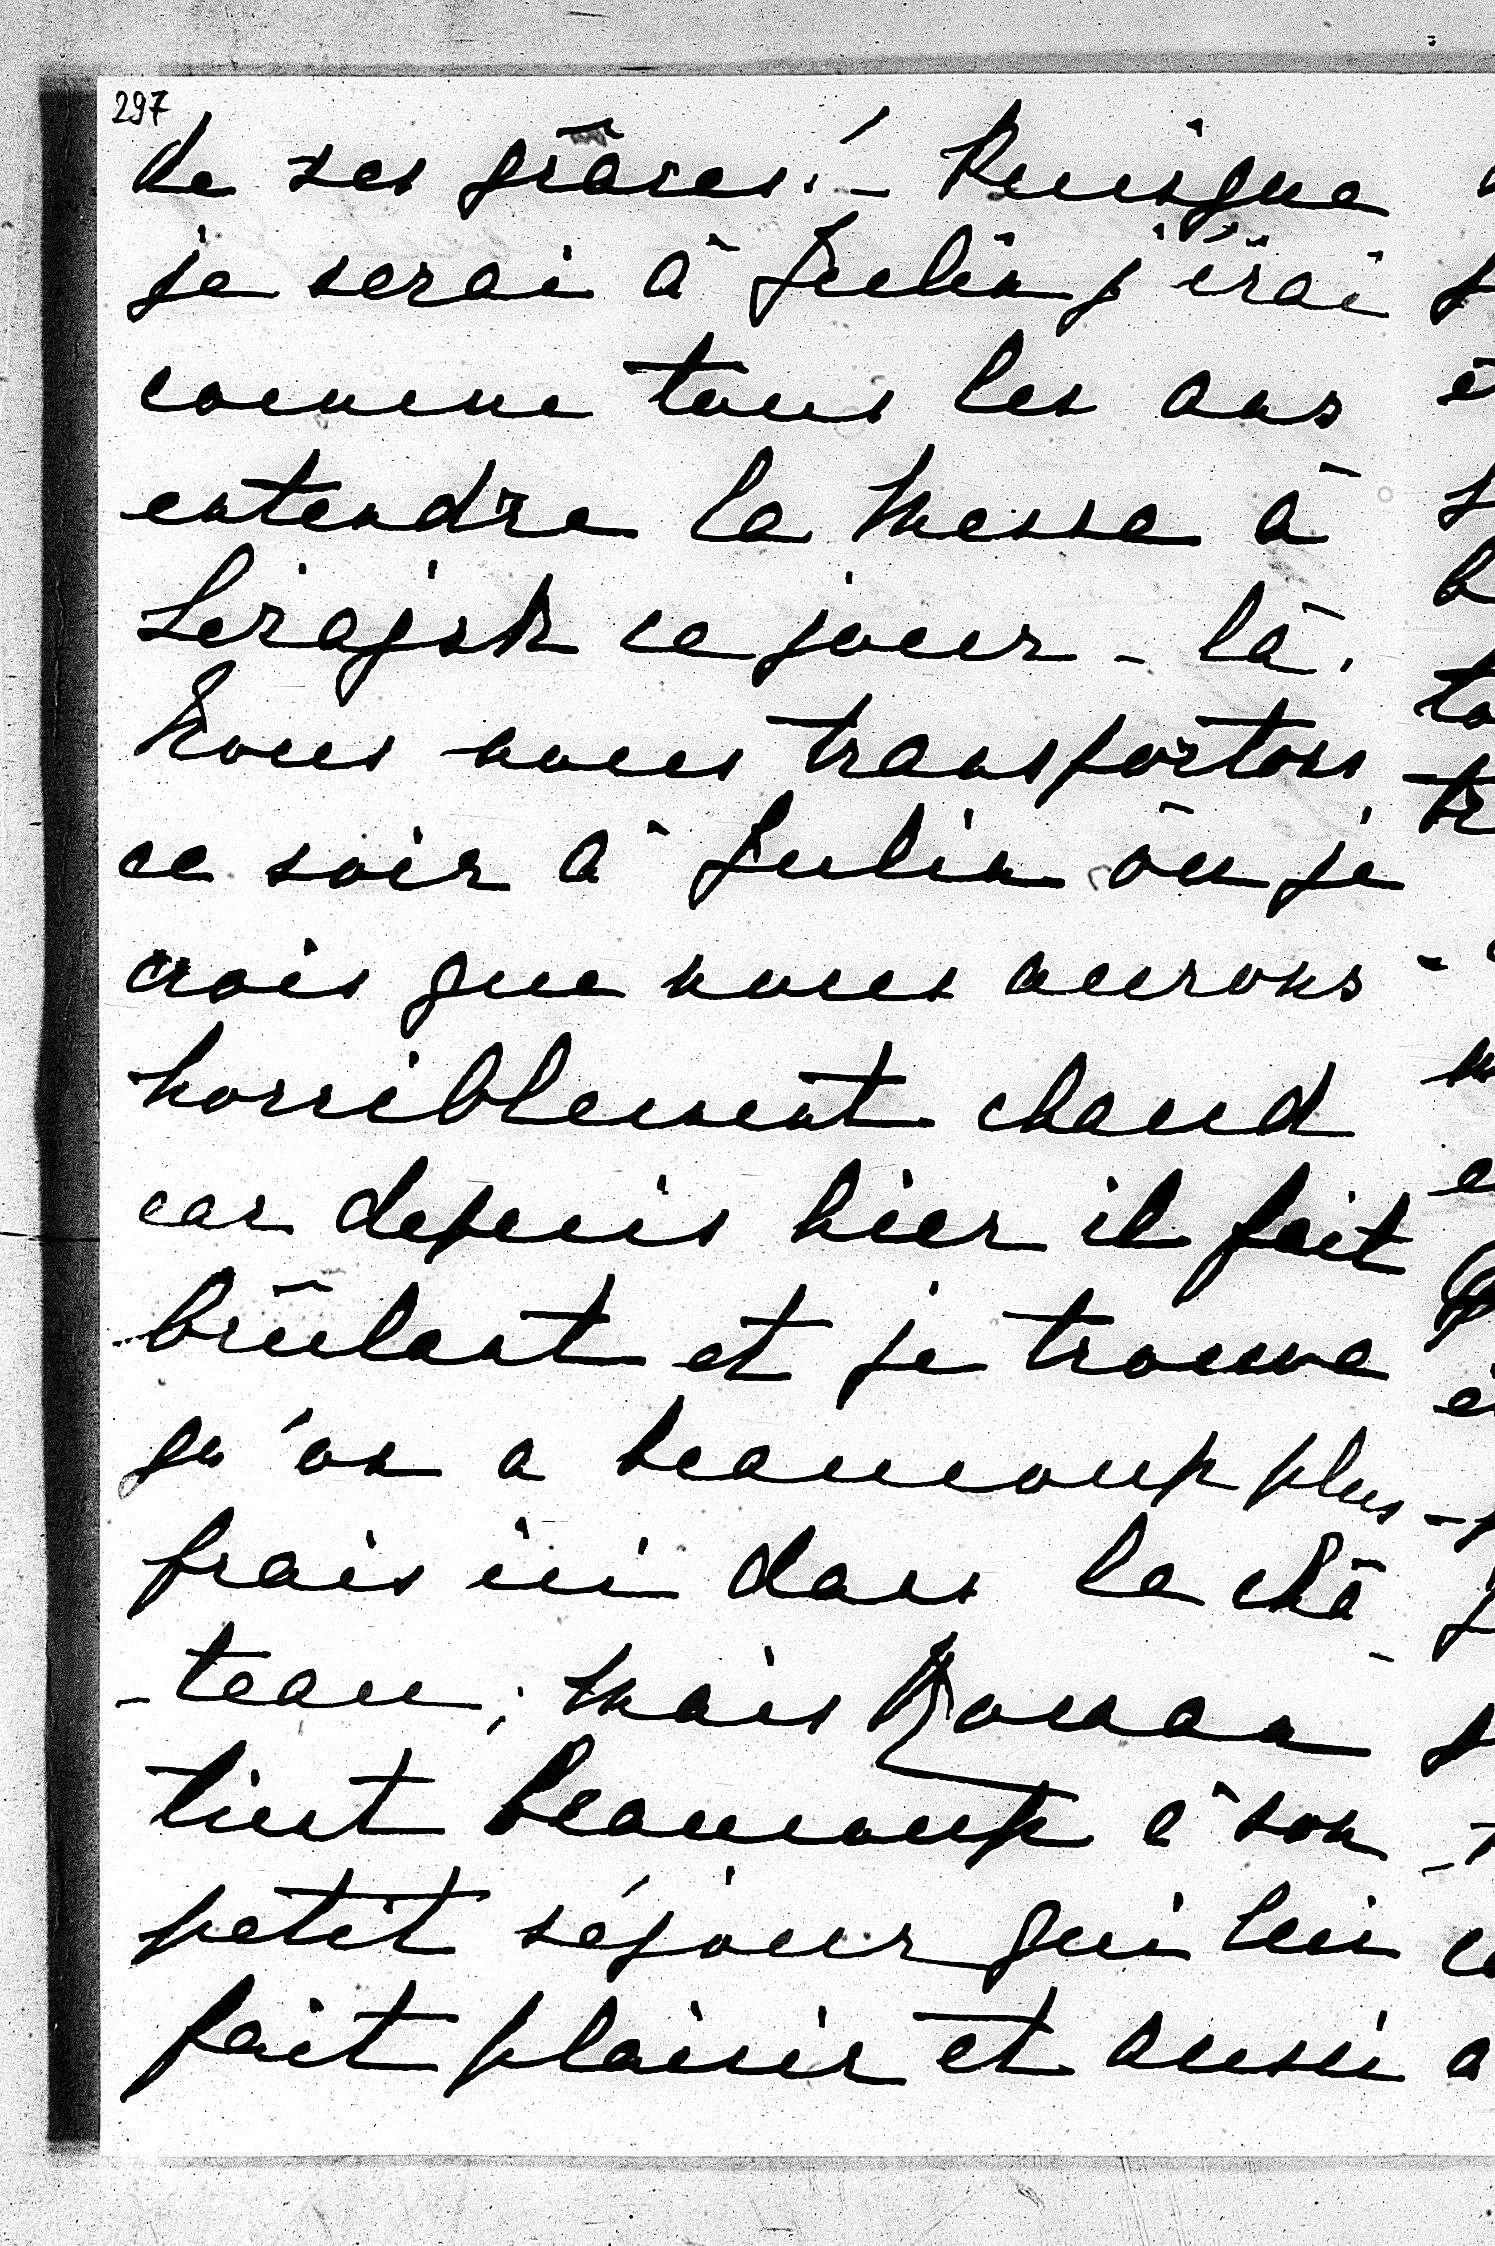 297
de ses grâces! – Puisque
je serai à Julin j'irai
comme tous les ans
entendre la Messe à
Leżajsk ce jour-là.
Nous nous transportons
ce soir à Julin où je
crois que nous aurons
horriblement chaud
car depuis hier il fait
brûlant et je trouve
qu'on a beaucoup plus
frais ici dans le châ-
-teau; mais Roman
tient beaucoup à son
petit séjour qui lui
fait plaisir et aussi